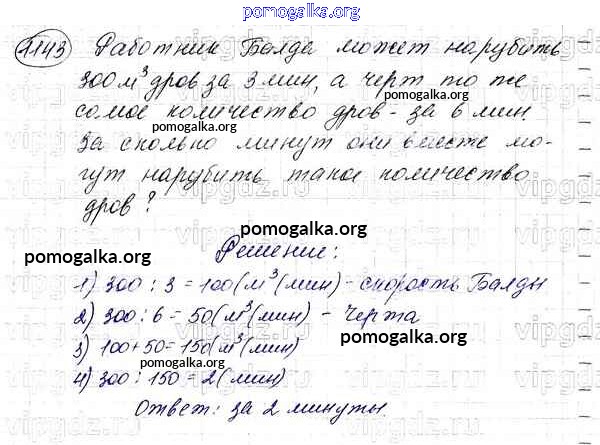 pomogalka.org
1143 Работник Балда может нарубить
300 м³ дров за 3 мин, а черт то же
самое количество дров - за 6 мин.
pomogalka.org
За сколько минут они вместе мо-
гут нарубить такое количество
дров?
pomogalka.org
Решение:
pomogalka.org
1) 300 : 3 = 100 (м³(мин) - скорость Балды
pomogalka.org
2) 300 : 6 = 50 (м³(мин) - Черта
pomogalka.org
3) 100 + 50 = 150 (м³(мин)
pomogalka.org
4) 300 : 150 = 2 (мин)
Ответ: за 2 минуты.
pomogalka.org